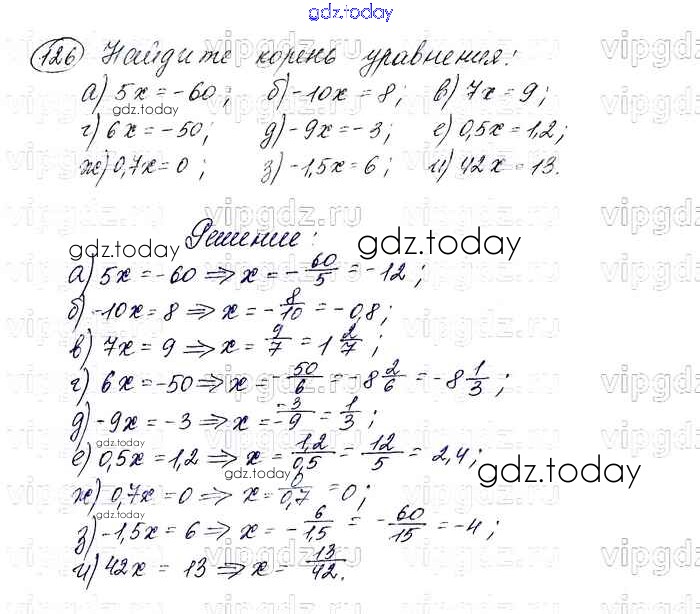 gdz.today
126 Найдите корень уравнения:
а) 5x = -60; б) -10x = 8; в) 7x = 9;
gdz.today
г) 6x = -50; д) -9x = -3; е) 0,5x = 1,2;
ж) 0,7x = 0; з) -1,5x = 6; и) 42x = 13.
vipgdz.ru
Решение:
gdz.today gdz.today
а) 5x = -60 ⇒ x = -60/5 = -12;
б) -10x = 8 ⇒ x = -8/10 = -0,8;
в) 7x = 9 ⇒ x = 9/7 = 1 2/7;
г) 6x = -50 ⇒ x = -50/6 = -8 2/6 = -8 1/3;
д) -9x = -3 ⇒ x = -3/-9 = 1/3;
gdz.today
е) 0,5x = 1,2 ⇒ x = 1,2/0,5 = 12/5 = 2,4;
gdz.today gdz.today
ж) 0,7x = 0 ⇒ x = 0/0,7 = 0;
з) -1,5x = 6 ⇒ x = -6/1,5 = -60/15 = -4;
и) 42x = 13 ⇒ x = 13/42.